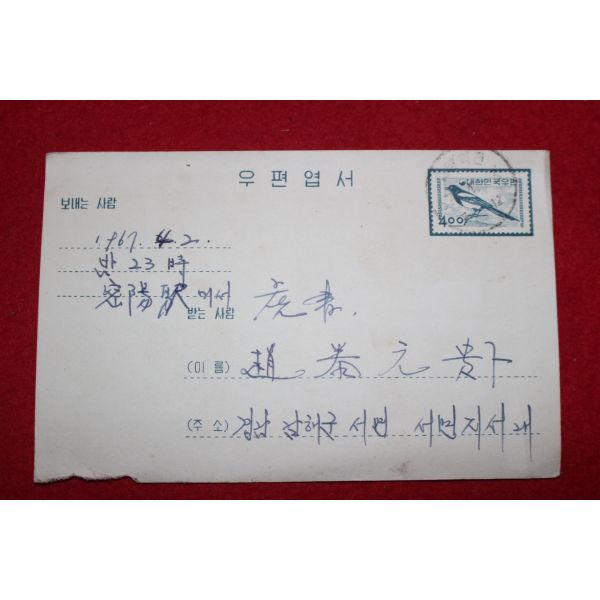 우편엽서
대한민국우표
4.00
보내는 사람
1967. 4. 2.
밤 23時
密陽駅에서
받는 사람
(이 름) 趙 泰 元 貴下
(주 소) 경남 남해군 서면 서면지서 내